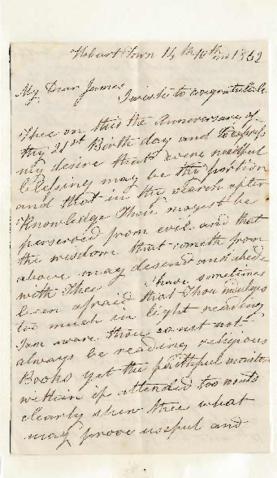 Hobart Town 14th 10th mo 1862
My Dear James
I wish to congratulate
Thee on this the Anniversary of
thy 21st Birth day and to express
my desire that every needful
blessing may be thy portion
and that in the search after
Knowledge Thou mayest be
perserved from evil and that
the wisdom that cometh from
above may descend and
with Thee I have sometimes
been afraid that Thou indulges
too much in light reading
I am aware thou canst not
always be reading religious
Books yet the faithful monitor
within if attended too
clearly shew thee what
may prove useful and